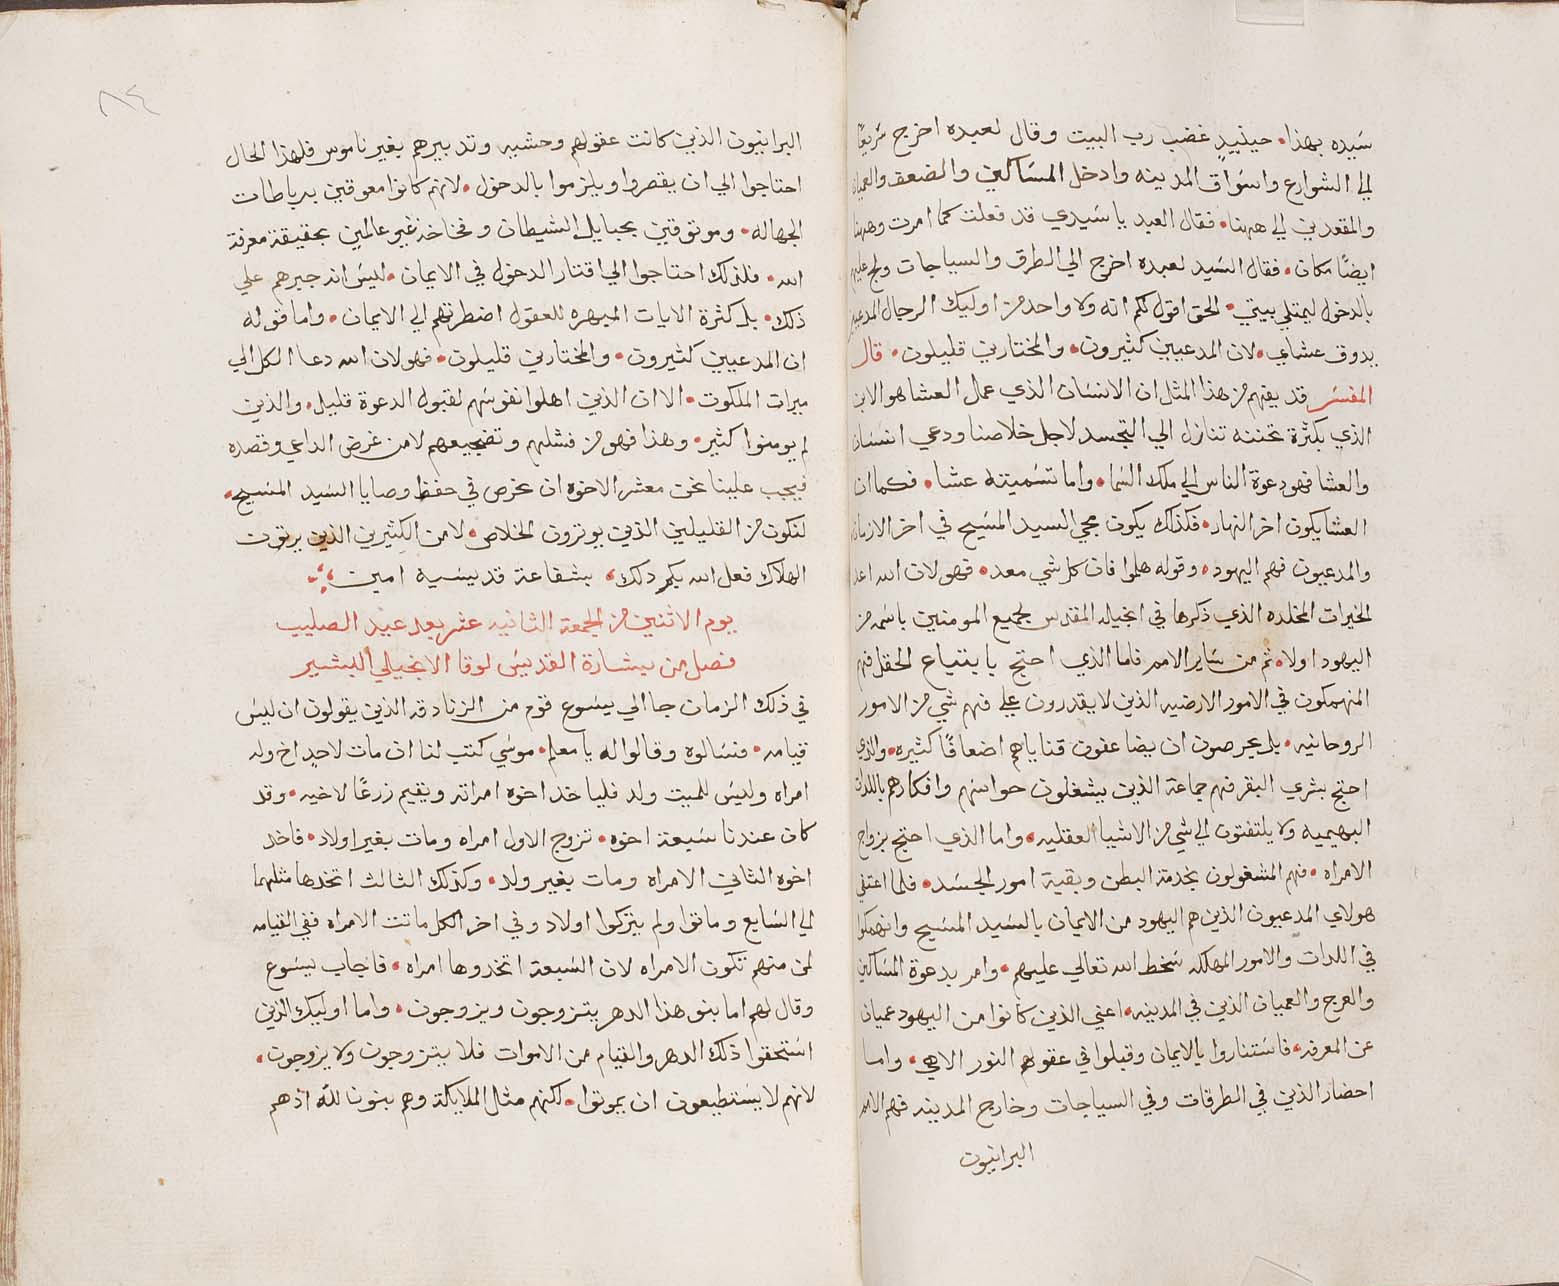 سيده بهذا٠ حينيذٍ غضب رب البيت وقال لعبده اخرج سريعًا
الي الشوارع واسواق المدينه وادخل المساكين والضعف والعميان
والمقعدين الي ههنا٠ فقال العبد يا سيدي قد فعلت كما امرت وههنا
ايضًا مكان٠ فقال السيد لعبده اخرج الي الطرق والسياجات ولج عليهم
بالدخول ليمتلي بيتي٠ الحق اقول لكم انه ولا واحد من اوليك الرجال المدعيين
يدوق عشاي٠ لان المدعيين كثيرون٠ والمختارين قليلون٠ قال
المفسر قد يفهم من هذا المثل ان الانسان الذي عمل العشا هو الابن
الذي بكثرة تحننه تنازل الي التجسد لاجل خلاصنا ودعي انسان
والعشا فهو دعوة الناس الي ملك السما٠ واما تسميته عشا٠ فكما ان
العشا يكون اخر النهار٠ فكذلك يكون مجي السيد المسيح في اخر الازمان
والمدعيون فهم اليهود٠ وقوله هلموا فان كل شي معد٠ فهو لان الله اعد
الخيرات المخلده الذي ذكرها في انجيله المقدس لجميع المومنين باسمه من
اليهود اولا٠ ثم من ساير الامم فاما الذي احتج بابتياع الحقل فهم
المنهمكون في الامور الارضيه الذين لا يقدرون علي فهم شي من الامور
الروحانيه٠ بل يحرصون ان يضاعفون قناياهم اضعافًا كثيره٠ والذي
احتج بشري البقر فهم جماعة الذين يشغلون حواسهم وافكارهم باللدات
البهيميه ولا يلتفتون الي شي من الاشيا العقليه٠ واما الذي احتج بزواج
الامراه٠ فهم المشغولون بخدمة البطن وبقية امور الجسد٠ فلما اعتفي
هولاي المدعيون الذين هم اليهود من الايمان بالسيد المسيح وانهمكوا
في اللدات والامور المهلكه سخط الله تعالي عليهم٠ وامر بدعوة المساكين
والعرج والعميان الذين في المدينه٠ اعني الذين كانوا من اليهود عميان
عن المعرفه٠ فاستناروا بالايمان وقبلوا في عقولهم النور الالاهي٠ واما
احضار الذين في الطرقات وفي السياجات وخارج المدينه فهم الامم
البرانيون
٨٤
البرانيون الذين كانت عقولهم وحشيه وتدبيرهم بغير ناموس فلهذا الحال
احتاجوا الي ان يقصروا ويلزموا بالدخول٠ لانهم كانوا معوقين برباطات
الجهاله٠ وموثوقين بحبايل الشيطان وفخاخه غير عالمين بحقيقة معرفة
الله٠ فلذلك احتاجوا الي اقتسار الدخول في الايمان٠ ليس انه جبرهم علي
ذلك٠ بل كثرة الايات المبهره للعقول اضطرتهم الي الايمان٠ واما قوله
ان المدعيين كثيرون٠ والمختارين قليلون٠ فهو لان الله دعا الكل الي
ميرات الملكوت٠ الا ان الذين اهلوا نفوسهم لقبول الدعوة قليل٠ والذين
لم يومنوا كثير٠ وهذا فهو من فشلهم وتضجيعهم لا من غرض الداعي وقصده
فيجب علينا نحن معشر الاخوه ان نحرص في حفظ وصايا السيد المسيح٠
لنكون من القليلين الذين يوترون الخلاص٠ لا من الكثيرين الذين يرتون
الهلاك فعل الله بكم دلك٠ بشفاعة قديسيه امين
يوم الاثنين من الجمعة الثانيه عشر بعد عيد الصليب
فصل من بيشارة القديس لوقا الانجيلي البشير
في ذلك الزمان جا الي يسوع قوم من الزنادقه الذين يقولون ان ليس
قيامه٠ فسالوه وقالوا له يا معلم٠ موسي كتب لنا ان مات لاحدٍ اخ وله
امراه وليس للميت ولد فلياخد اخوه امراته ويقيم زرعًا لاخيه٠ وقد
كان عندنا سبعة اخوه٠ تزوج الاول امراه ومات بغير اولاد٠ فاخد
اخوه الثاني الامراه ومات بغير ولد٠ وكذلك الثالث اتخدها مثلهما
الي السابع وماتوا ولم يتركوا اولاد وفي اخر الكل ماتت الامراه ففي القيامه
لمن منهم تكون الامراه لان السبعة اتخدوها امراه٠ فاجاب يسوع
وقال لهم اما بنو هذا الدهر يتزوجون ويزوجون٠ واما اوليك الذين
استحقوا ذلك الدهر والقيام من الاموات فلا يتزوجون ولا يزوجون٠
لانهم لا يستطيعون ان يموتوا٠ لكنهم مثل الملايكة وهم بنون لله اذ هم